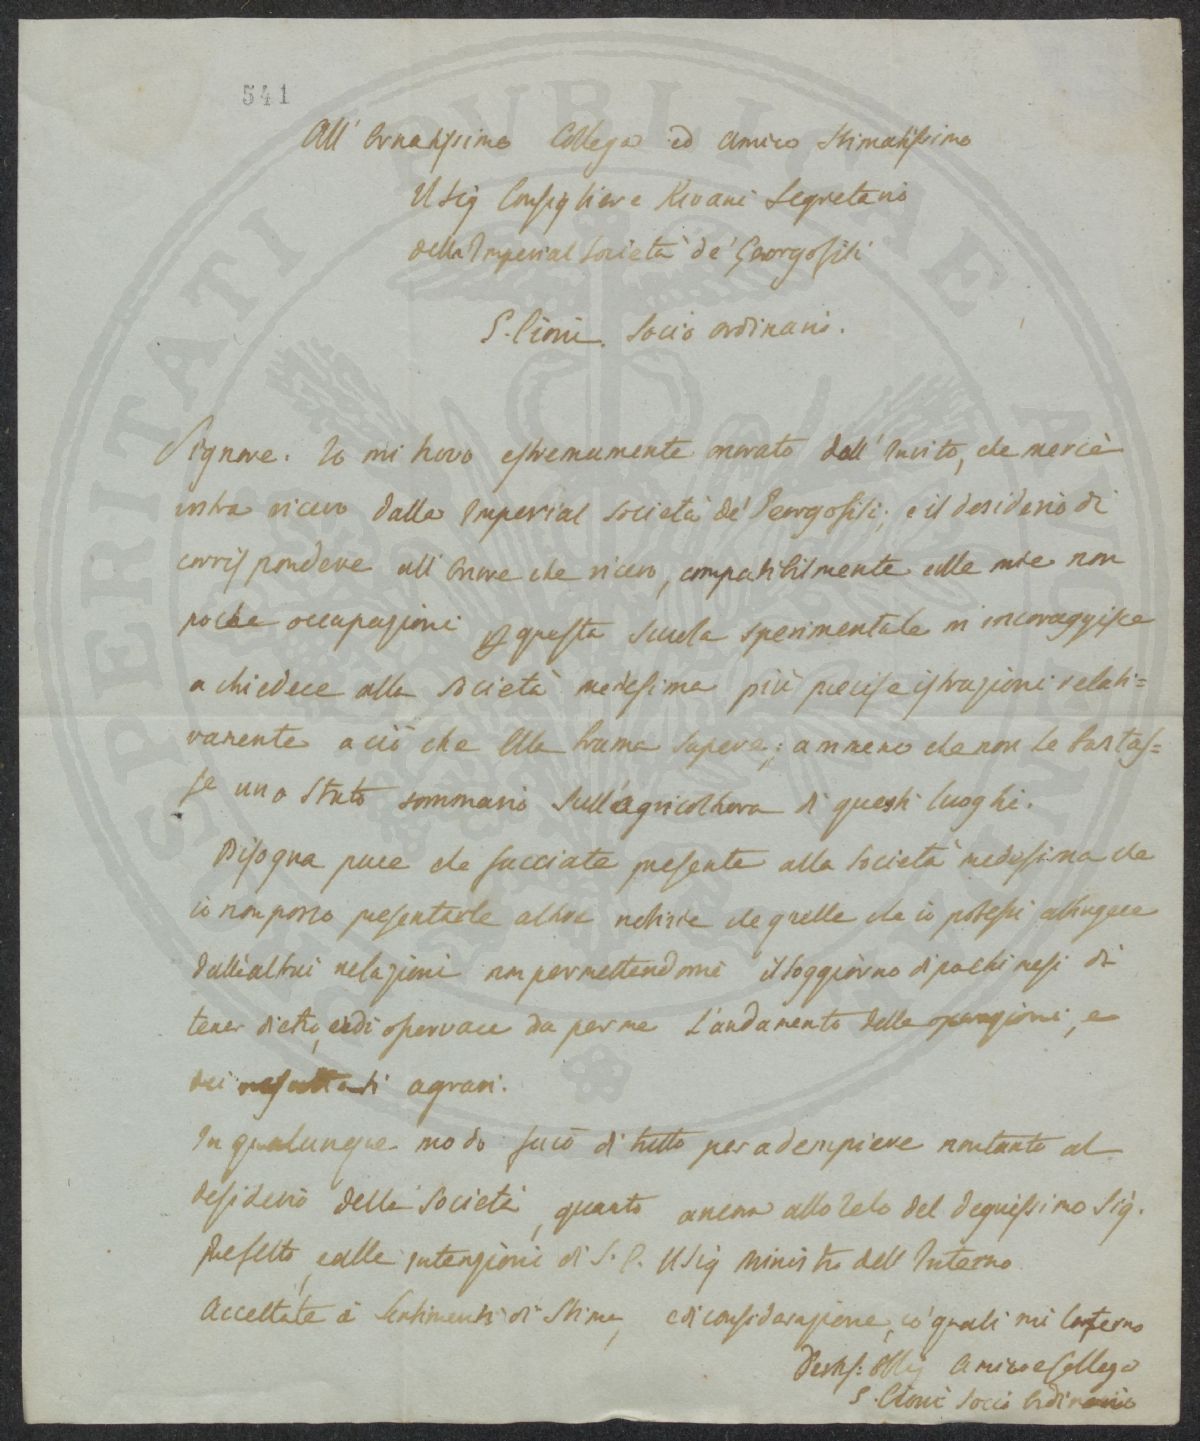 541
All' Ornatissimo Collega ed Amico Stimatissimo
Il Sig Consigliere Rivani Segretario
della Imperial Società de' Georgofili
G. Cioni. Socio ordinario.
Signore. Io mi trovo estremamente onorato dall' Invito, che mercè
vostra ricevo dalla Imperial Società de' Georgofili; e il desiderio di
corrispondere all' Onore che ricevo, compatibilmente alle mie non
poche occupazioni questa Scuola sperimentale m' incoraggisce
a chiedere alla Società medesima più precise istruzioni relati=
vamente a ciò che Ella brama sapere; a meno che non le bastas=
se uno Stato sommario sull'agricoltura di questi luoghi.
Bisogna pure che facciate presente alla Società medesima che
io non posso presentarle altre notizie che quelle che io potessi attingere
dalle altrui relazioni non permettendomi il soggiorno di pochi mesi di
tener dietro, e di osservare da per me l'andamento delle operazioni, e
dei resultati agrari.
In qualunque modo farò di tutto per adempiere non tanto al
desiderio della Società, quanto ancora allo zelo del degnissimo Sig.
Prefetto, e alle intenzioni di S. E. Il Sig Ministro dell' Interno
Accettate i Sentimenti di Stima, e di considerazione, co' quali mi confermo
Amico e Collega
G. Cioni Socio Ordinario
SPERITATI PVBLICAE